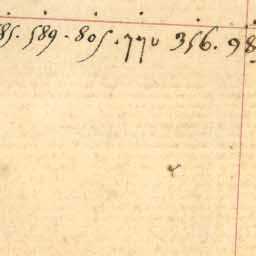 85. 589. 805. 770 356. 98